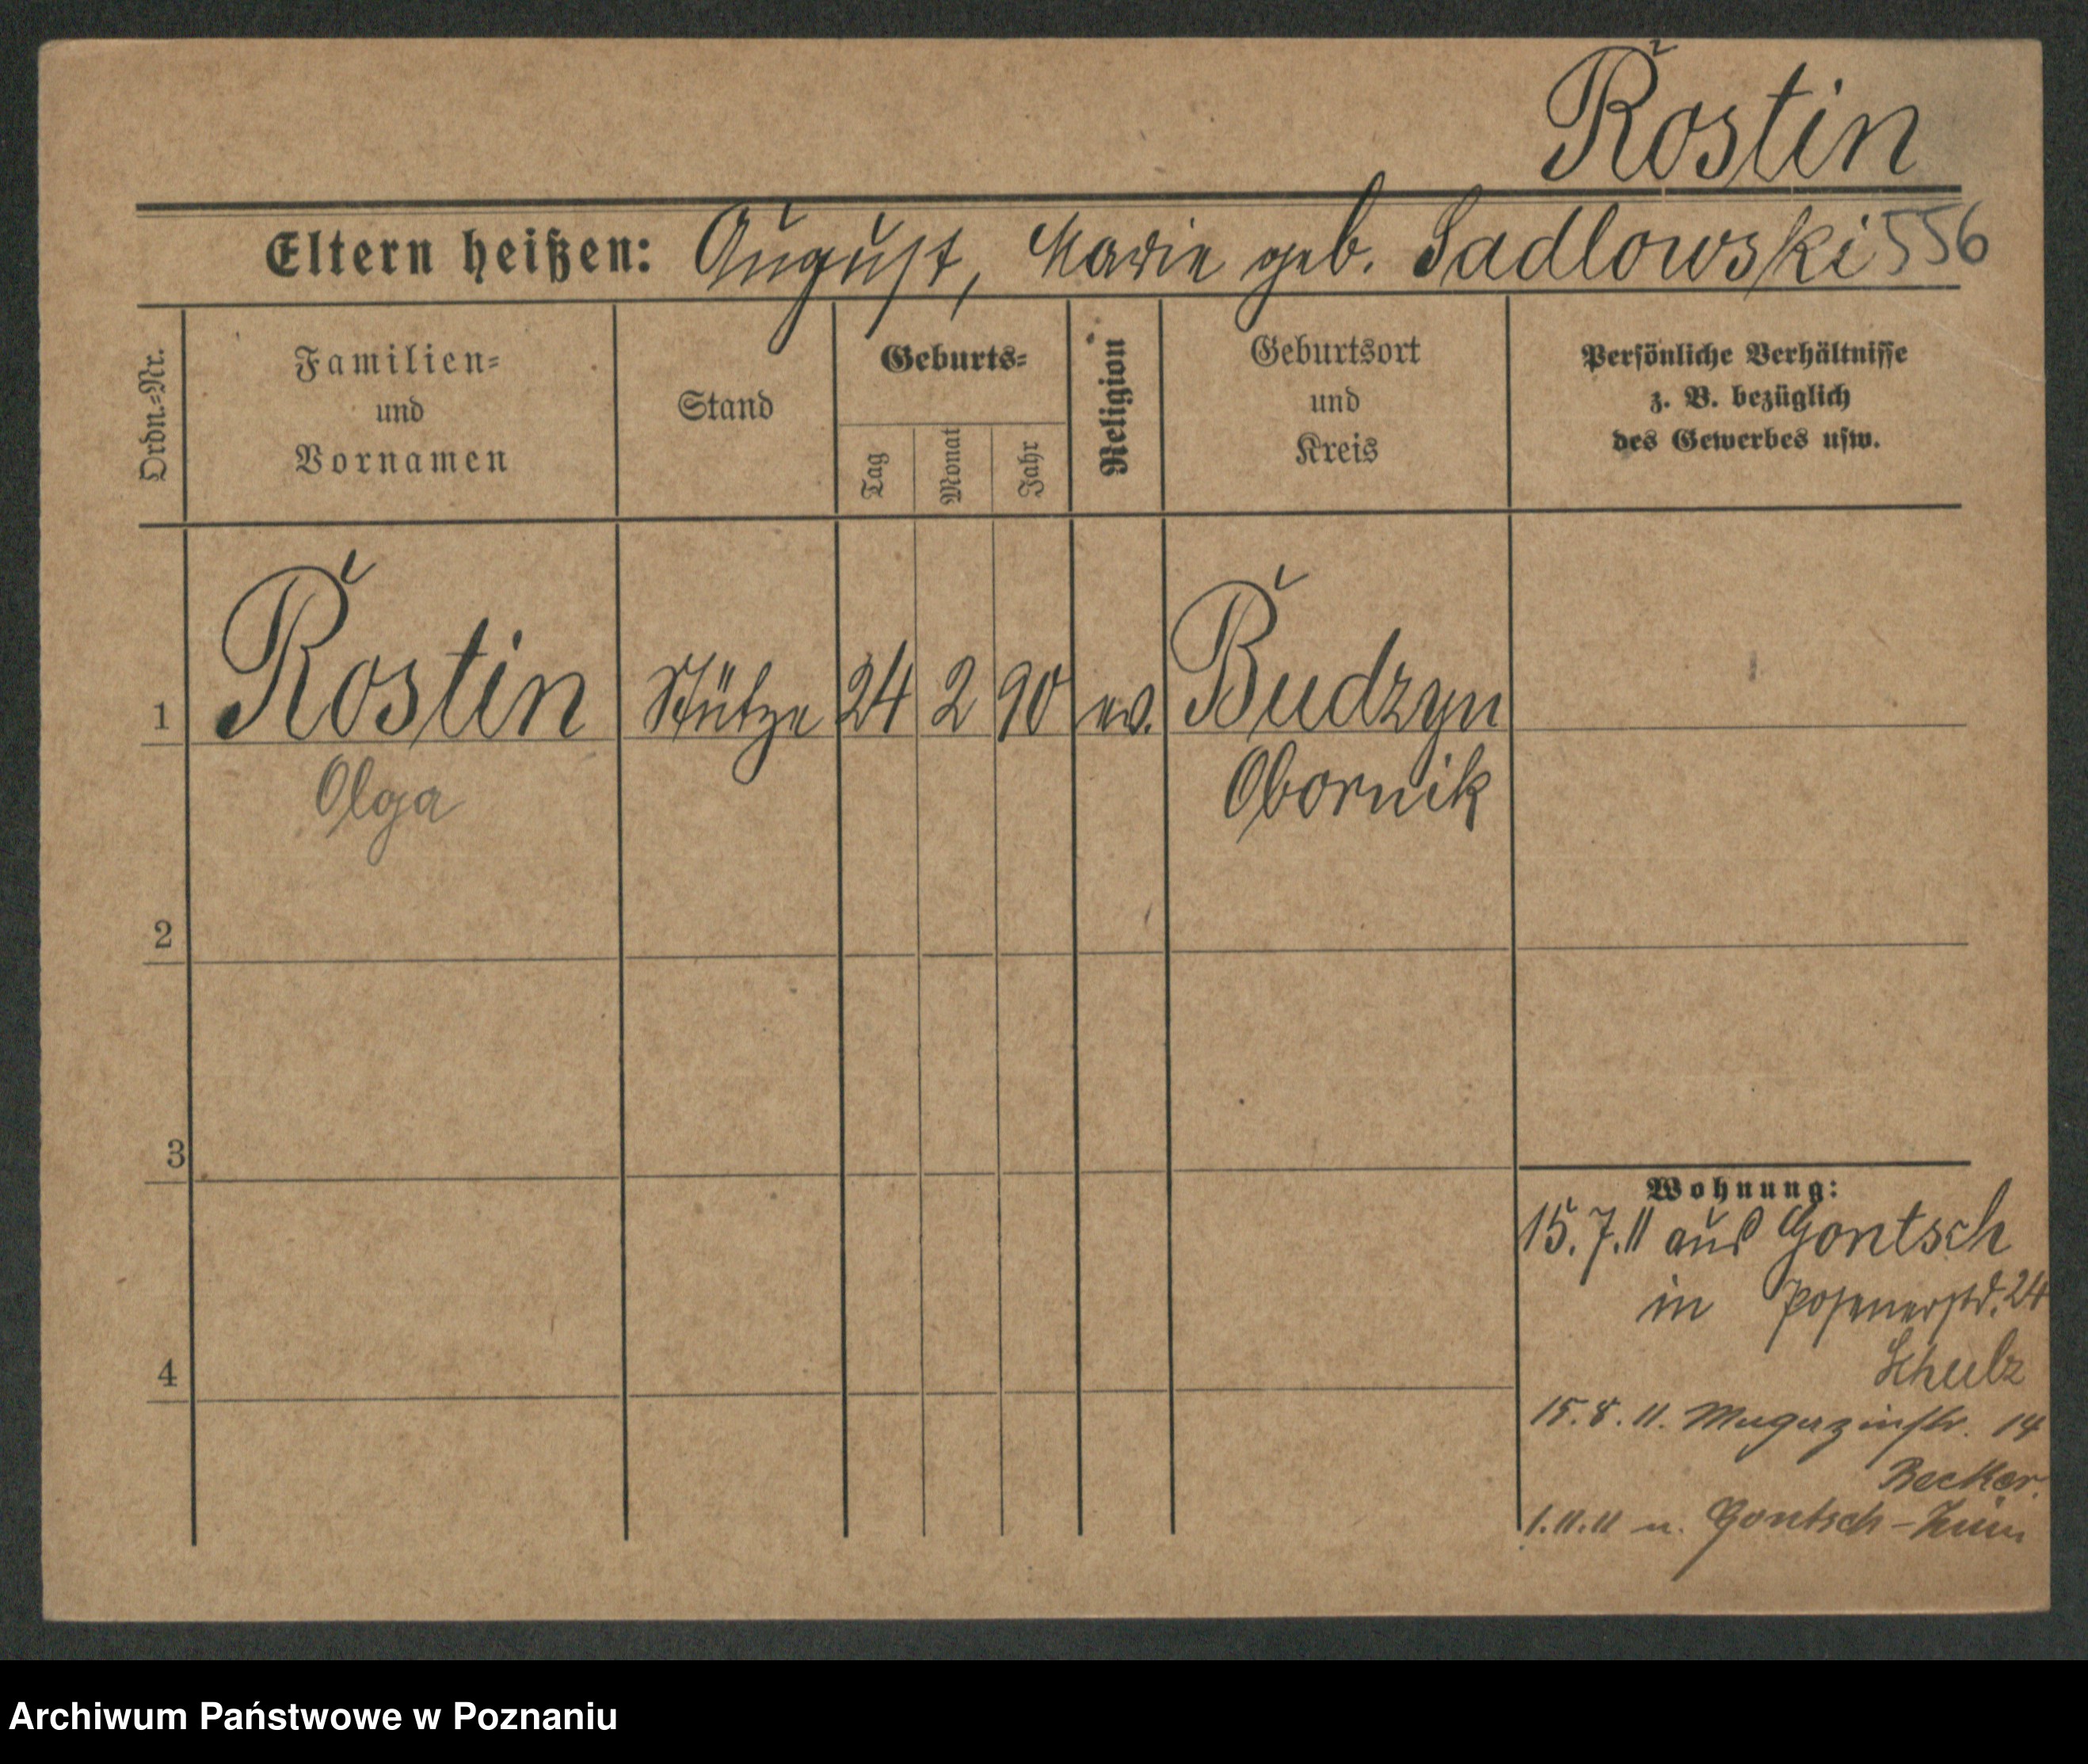 Rostin
Eltern heißen: August, Marie geb. Sadlowski 556
Ordn.=Nr.
Familien=
und
Vornamen
Stand
Geburts=
Tag
Monat
Jahr
Religion
Geburtsort
und
Kreis
Persönliche Verhältnisse
z. B. bezüglich
des Gewerbes usw.
1 Rostin Stütze 24 2 90 ev. Budzyn
Olga Obornik
2
3
Wohnung:
15.7.11 aus Gontsch
in Posenerstr. 24
Schulz
4
15.8.11. Magazinstr. 14
Becker.
1.11.11 n. Gontsch-
Archiwum Państwowe w Poznaniu